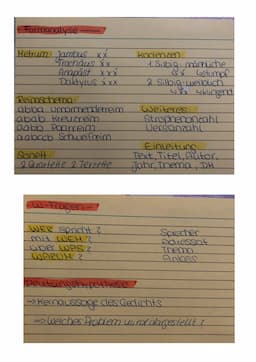 Formanalyse
Metrum: Jambus xx́ Kadenzen
Trochäus x́x 1. Silbig: männliche
Anapäst xxx́ stumpf
Daktylus x́xx 2. Silbig: weiblich
klingend
Reimschema:
abba Umarmenderreim Weiteres:
abab Kreuzreim Strophenanzahl
aabb Paarreim Versanzahl
aabccb Schweifreim
Einleitung:
Sonett Text, Titel, Autor,
2 Quartette 2 Terzette Jahr, Thema, DH
W-Fragen
WER spricht? Sprecher
mit WEM? Adressat
über WAS? Thema
WARUM? Anlass
Deutungshypothese
→ Kernaussage des Gedichts
→ Welches Problem wird dargestellt?